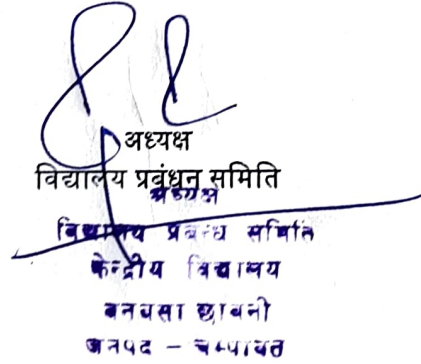 अध्यक्ष
विद्यालय प्रबंधन समिति
अध्यक्ष
विद्यालय प्रबन्ध समिति
केन्द्रीय विद्यालय
बनबसा छावनी
जनपद - चम्पावत